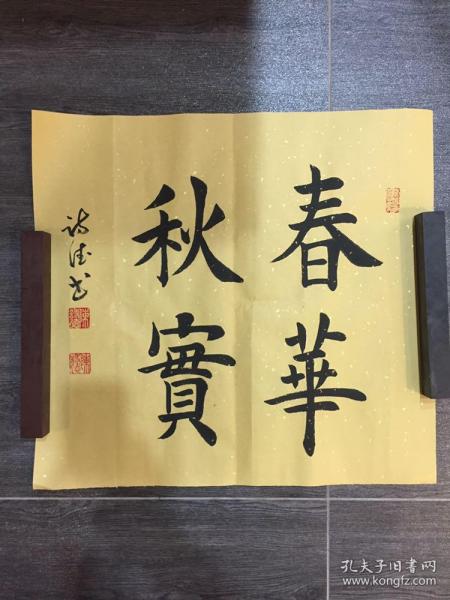 春華
秋實
诗德书
孔夫子旧书网
www.kongfz.com